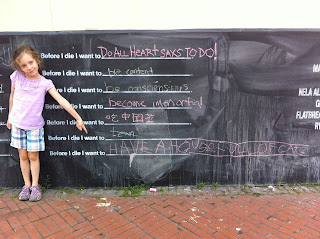 Before I die I want to DO ALL HEART SAYS TO DO!
Before I die I want to be content
Before I die I want to be conscientious
Before I die I want to become memorized
Before I die I want to
Before I die I want to learn
Before I die I want to HAVE A HOUSE FULL OF CATS
MA
NELA AL
G
FLATBREA
RY